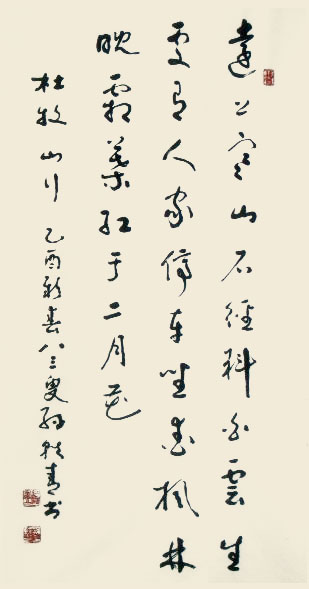 遠上寒山石徑斜白雲生
處有人家停車坐愛楓林
晚霜葉紅于二月花
杜牧山行 乙酉新春八三叟孫軼青書